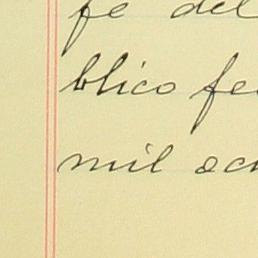 fé del
blico fe
mil oc